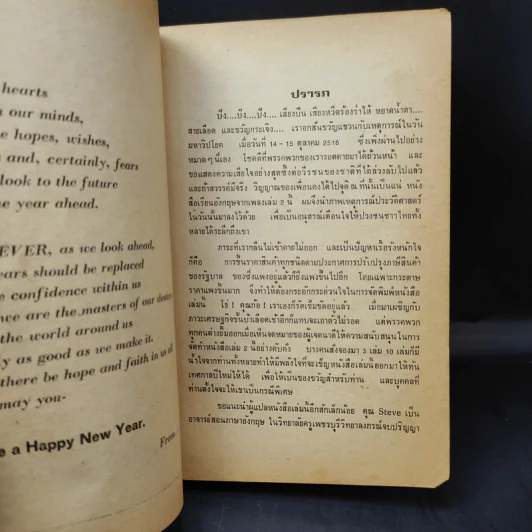 hearts
our minds,
hopes, wishes,
and, certainly, fears
look to the future
e year ahead.
EVER, as we look ahead,
ears should be replaced
e confidence within us
ce are the masters of our destiny
the world around us
ly as good as we make it.
there be hope and faith in us all
may you-
e a Happy New Year.
From
ปรารภ
ปัง....ปัง....ปัง.... เสียงปืน เสียงหวีดร้องร่ำไห้ หยาดน้ำตา....
สายเลือด และขวัญกระเจิง.... เราอกสั่นขวัญแขวนกับเหตุการณ์ในวัน
มหาวิปโยค เมื่อวันที่ 14 - 15 ตุลาคม 2516 ซึ่งเพิ่งผ่านไปอย่าง
หมาด ๆ นี่เอง โชคดีที่พรรคพวกของเรารอดตายมาได้ถ้วนหน้า และ
ขอแสดงความเสียใจอย่างสุดซึ้งต่อวีรชนของชาติที่ได้ล่วงลับไปแล้ว
และถ้าสวรรค์มีจริง วิญญาณของเพื่อนคงได้ไปจุติ ณ ที่นั้นเป็นแน่ หนัง
สือเรียนอังกฤษจากเพลงเล่ม 2 นี้ ผมจึงนำภาพเหตุการณ์ประวัติศาสตร์
ในวันนั้นมาลงไว้ด้วย เพื่อเป็นอนุสรณ์เตือนใจให้ปวงชนชาวไทยทั้ง
หลายได้ระลึกถึงเขา
ภาระที่เรากลืนไม่เข้าคายไม่ออก และเป็นปัญหาเรื้อรังหนักใจ
ก็คือ การขึ้นราคาสินค้าทุกชนิดตามประกาศการปรับปรุงภาษีสินค้า
ของรัฐบาล ของซึ่งแพงอยู่แล้วก็ยิ่งแพงขึ้นไปอีก โดยเฉพาะกระดาษ
ราคาแพงขึ้นมาก จึงทำให้ต้องกระอักกระอ่วนใจในการจัดพิมพ์หนังสือ
เล่มนี้ โธ่ ! คุณก้อ ! เราเองก็รัดเข็มขัดอยู่แล้ว เมื่อมาเผชิญกับ
ภาวะเศรษฐกิจขั้นน้ำเลือดเข้าอีกก็แทบจะเอาตัวไม่รอด แต่พรรคพวก
ทุกคนต่างยิ้มออกเมื่อเห็นจดหมายของผู้เจตนาดีให้ความสนับสนุนในการ
จัดทำหนังสือเล่ม 2 นี้อย่างคับคั่ง บางคนสั่งจองมา 3 เล่ม 10 เล่มก็มี
น้ำใจจากท่านทั้งหลายทำให้มีพลังใจที่จะเข็ญหนังสือเล่มนี้ออกมาให้ทัน
เทศกาลปีใหม่ให้ได้ เพื่อให้เป็นของขวัญสำหรับท่าน และบุคคลที่
ท่านตั้งใจจะให้เขาเป็นกรณีพิเศษ
ขอแนะนำผู้แปลหนังสือเล่มนี้อีกสักเล็กน้อย คุณ Steve เป็น
อาจารย์สอนภาษาอังกฤษ ในวิทยาลัยครูเพชรบุรีวิทยาลงกรณ์จบปริญญา